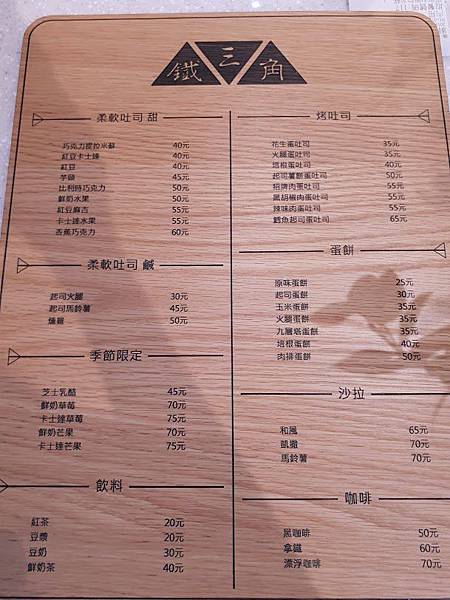 鐵三角
柔軟吐司 甜
巧克力提拉米蘇 40元
紅豆卡士達 40元
紅豆 40元
芋頭 45元
比利時巧克力 50元
鮮奶水果 50元
紅豆麻吉 55元
卡士達水果 55元
香蕉巧克力 60元
柔軟吐司 鹹
起司火腿 30元
起司馬鈴薯 45元
燻雞 50元
季節限定
芝士乳酪 45元
鮮奶草莓 70元
卡士達草莓 75元
鮮奶芒果 70元
卡士達芒果 75元
飲料
紅茶 20元
豆漿 20元
豆奶 30元
鮮奶茶 40元
烤吐司
花生蛋吐司 35元
火腿蛋吐司 35元
培根蛋吐司 40元
起司薯餅蛋吐司 50元
招牌肉蛋吐司 55元
黑胡椒肉蛋吐司 55元
辣味肉蛋吐司 55元
鱈魚起司蛋吐司 65元
蛋餅
原味蛋餅 25元
起司蛋餅 30元
玉米蛋餅 35元
火腿蛋餅 35元
九層塔蛋餅 35元
培根蛋餅 40元
肉排蛋餅 50元
沙拉
和風 65元
凱撒 70元
馬鈴薯 70元
咖啡
黑咖啡 50元
拿鐵 60元
漂浮咖啡 70元